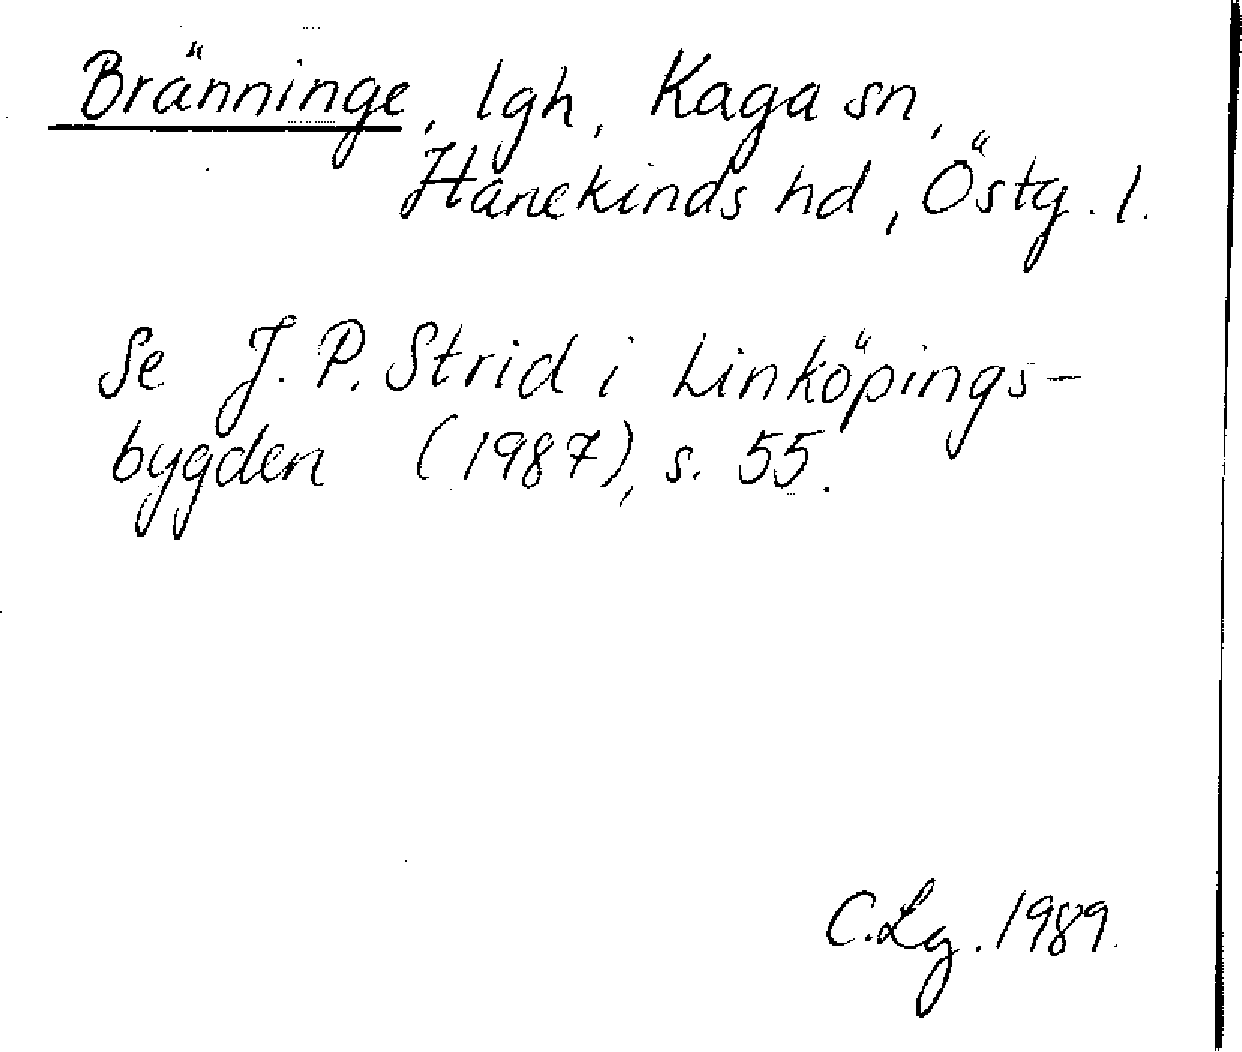 Bränninge, lgh, Kaga sn,
Hanekinds hd, Östg. l.
Se J. P. Strid i Linköpings-
bygden (1987), s. 55.
C. Lg. 1989.